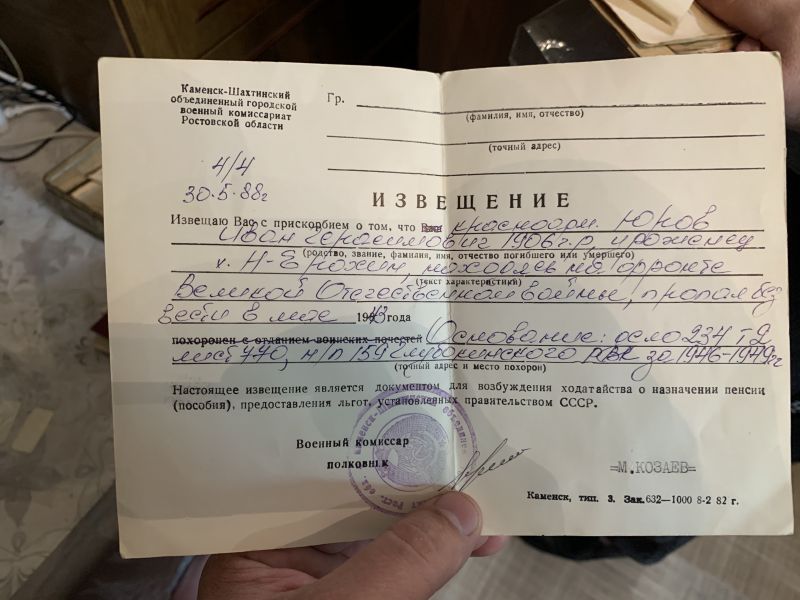 Каменск-Шахтинский
объединенный городской
военный комиссариат
Ростовской области
Гр.
(фамилия, имя, отчество)
(точный адрес)
4/4
30.5.88г
ИЗВЕЩЕНИЕ
Извещаю Вас с прискорбием о том, что Ваш красноарм. Юков
Иван Герасимович 1906 г.р, уроженец
(родство, звание, фамилия, имя, отчество погибшего или умершего)
х. Н-Ерохин, находясь на фронте
(текст характеристики)
Великой Отечественной войны, пропал без
вести в мае 1943 года
похоронен с отданием воинских почестей Основание: дело 234 т 2
лист 770, н/п 159 Глубокинского РВК за 1946-1949гг
(точный адрес и место похорон)
Настоящее извещение является документом для возбуждения ходатайства о назначении пенсии
(пособия), предоставления льгот, установленных правительством СССР.
Военный комиссар
полковник
=М.КОЗАЕВ=
Каменск, тип. 3. Зак. 632—1000 8-2 82 г.